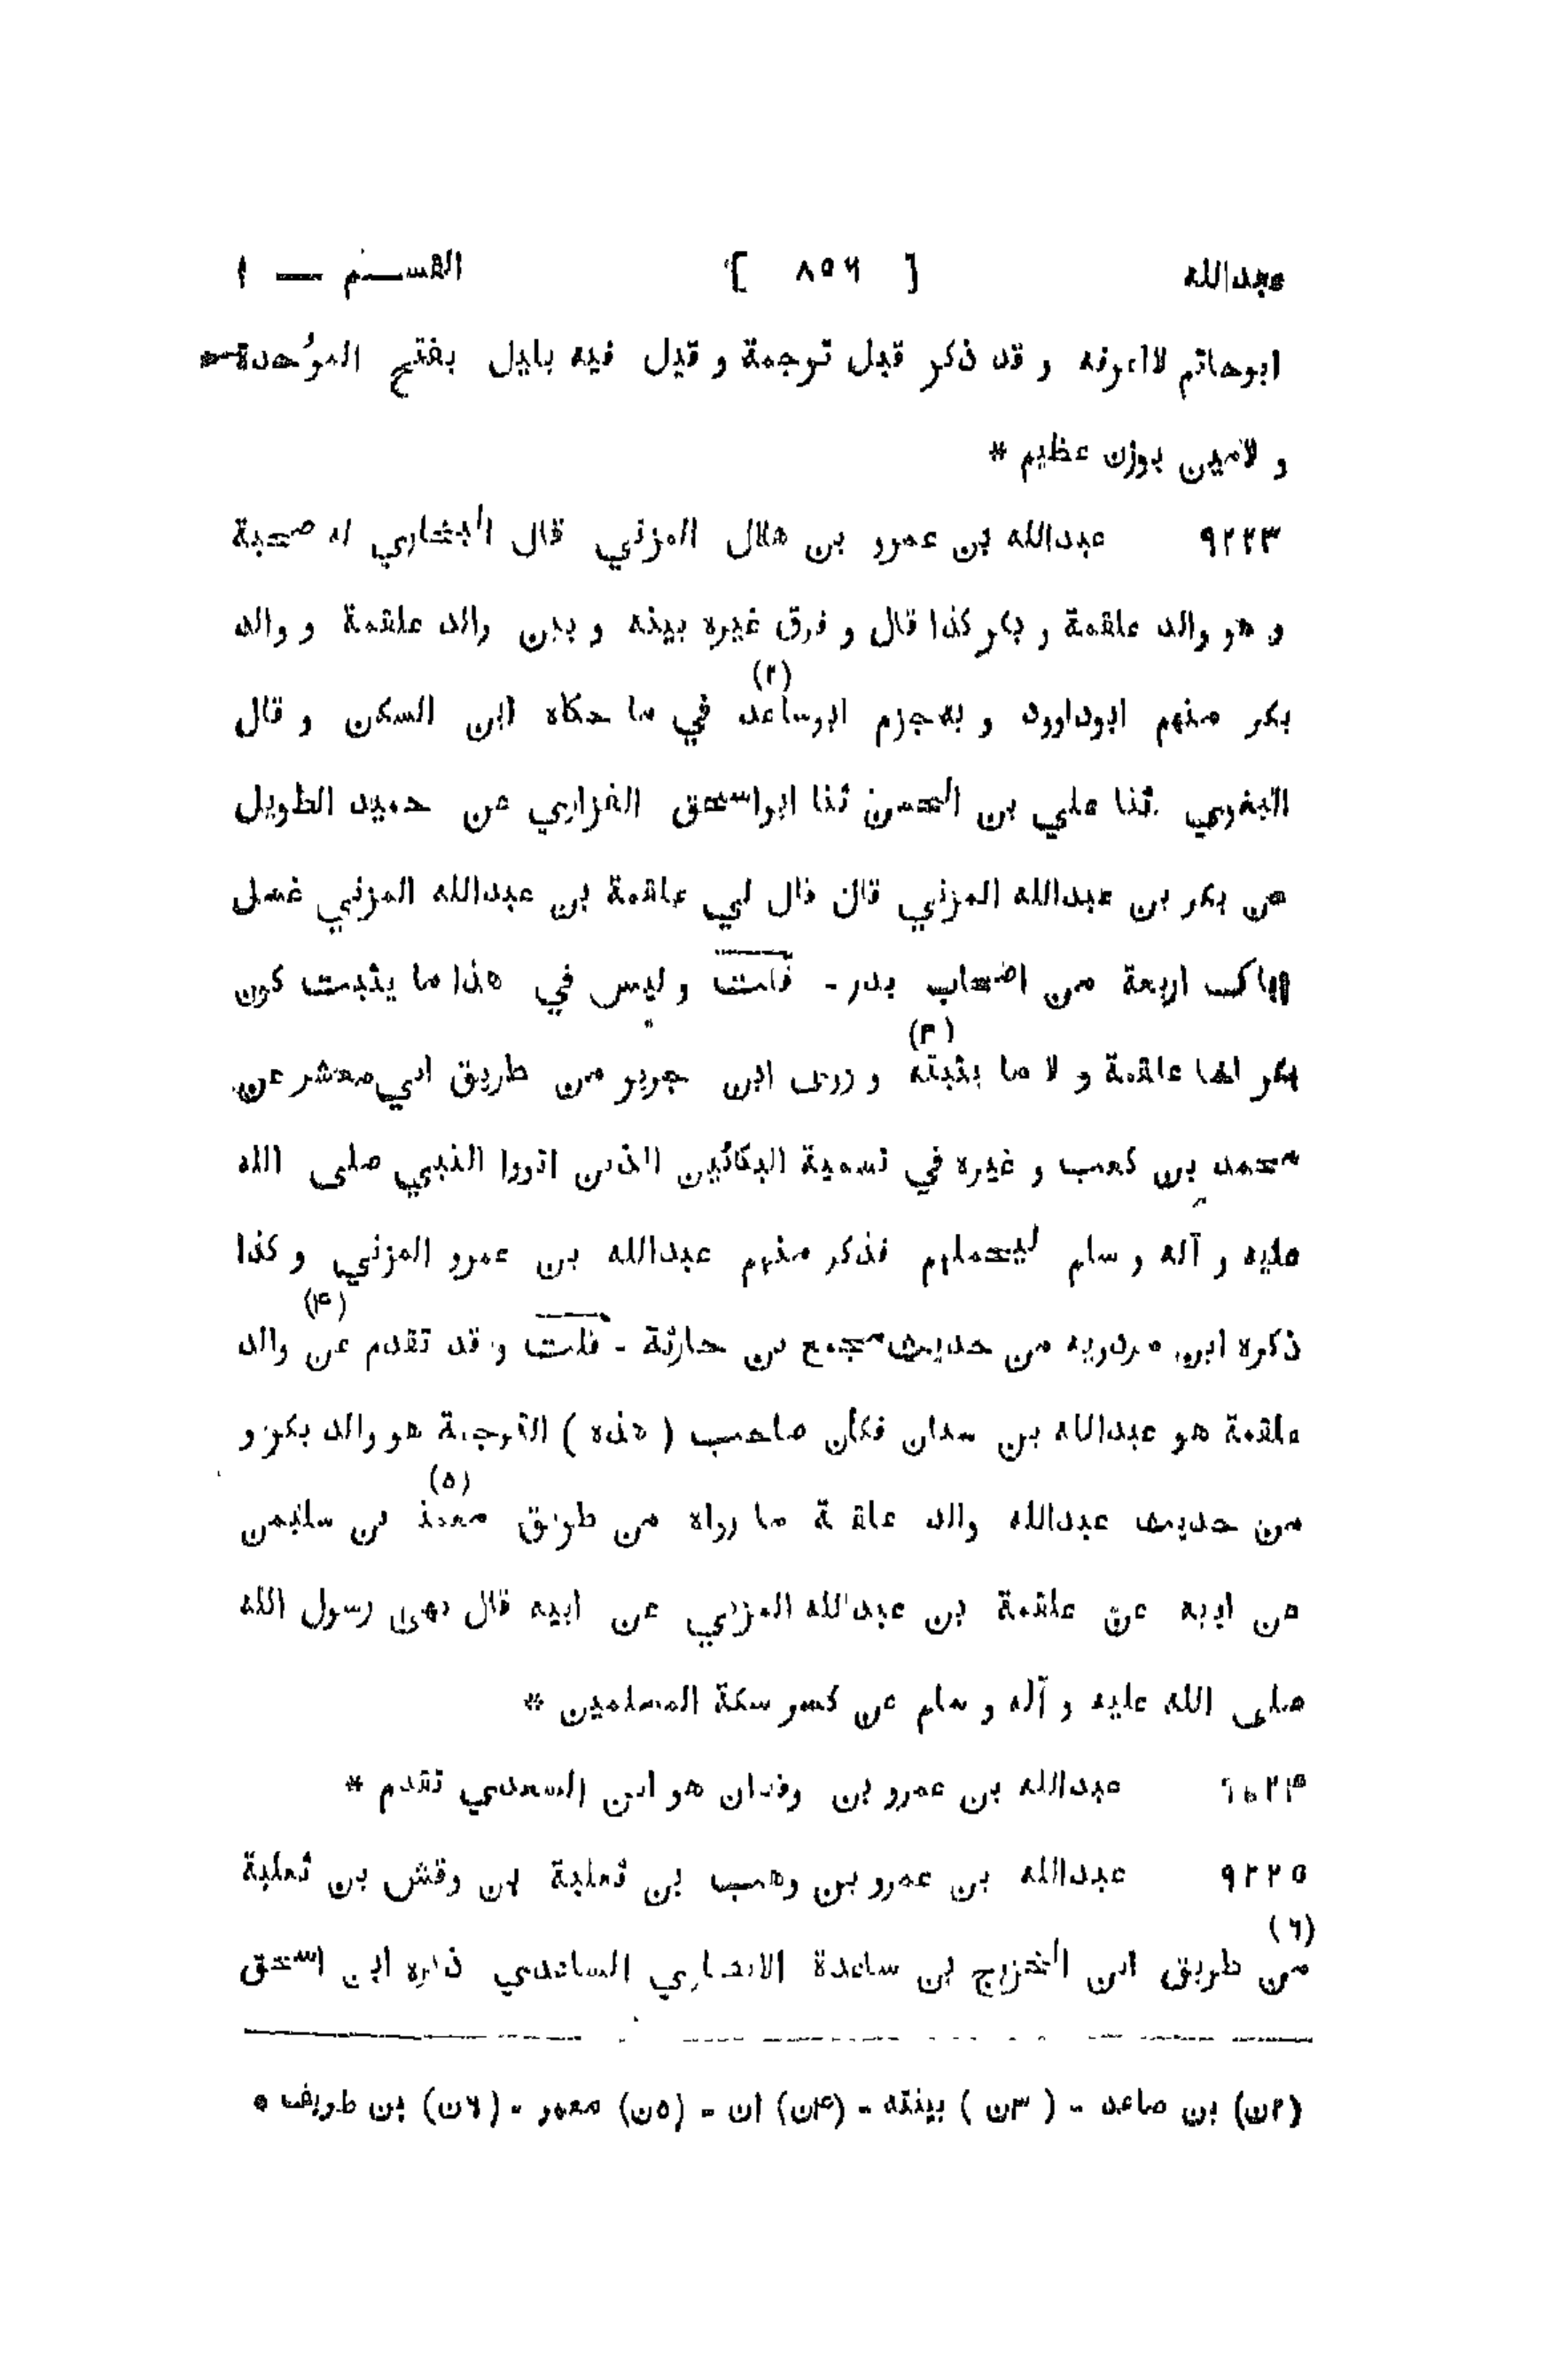 عبدالله [ ٨٥٦ ] القســم — ١
ابوحاتم لااعرفه و قد ذكر قبل ترجمة و قيل فيه بليل بفتح الموحدة
و لامين بوزن عظيم *
٩٢٢٣ عبدالله بن عمرو بن هلال المزني قال البخاري له صحبة
و هو والد علقمة و بكر كذا قال و فرق غيره بينه و بين والد علقمة و والد
بكر منهم ابوداوود و به جزم ابوساعد (٢) في ما حكاه ابن السكن و قال
البغوي ثنا علي بن الحسن ثنا ابواسحق الفزاري عن حميد الطويل
عن بكر بن عبدالله المزني قال قال لي علقمة بن عبدالله المزني غسل
اباك اربعة من اصحاب بدر - قلت و ليس في هذا ما يثبت كون
بكر اخا علقمة و لا ما يثبته (٣) و روى ابن جرير من طريق ابي معشر عن
محمد بن كعب و غيره في تسمية البكائين الذين اتووا النبي صلى الله
عليه و آله و سلم ليحملهم فذكر منهم عبدالله بن عمرو المزني و كذا
ذكره ابن مردويه من حديث مجمع بن حارثة - قلت و قد تقدم عن (۴) والد
علقمة هو عبدالله بن سنان فكأن صاحب ( هذه ) الترجمة هو والد بكر و
من حديث عبدالله والد علقمة ما رواه من طريق (٥) بن سليمن
عن ابيه عن علقمة بن عبدالله المزني عن ابيه قال نهى رسول الله
صلى الله عليه و آله و سلم عن كسر سكة المسلمين *
٩٢٢۴ عبدالله بن عمرو بن وقدان هو ابن السعدي تقدم *
٩٢٢٥ عبدالله بن عمرو بن وهب بن ثعلبة بن وقش بن ثعلبة
من (٦) طريق ابن الخزرج بن ساعدة الانصاري الساعدي ذكره ابن اسحق
(٢ن) بن صاعد - (٣ن) بينته - (۴ن) ان - (٥ن) معمر - (٦ن) بن طريف *